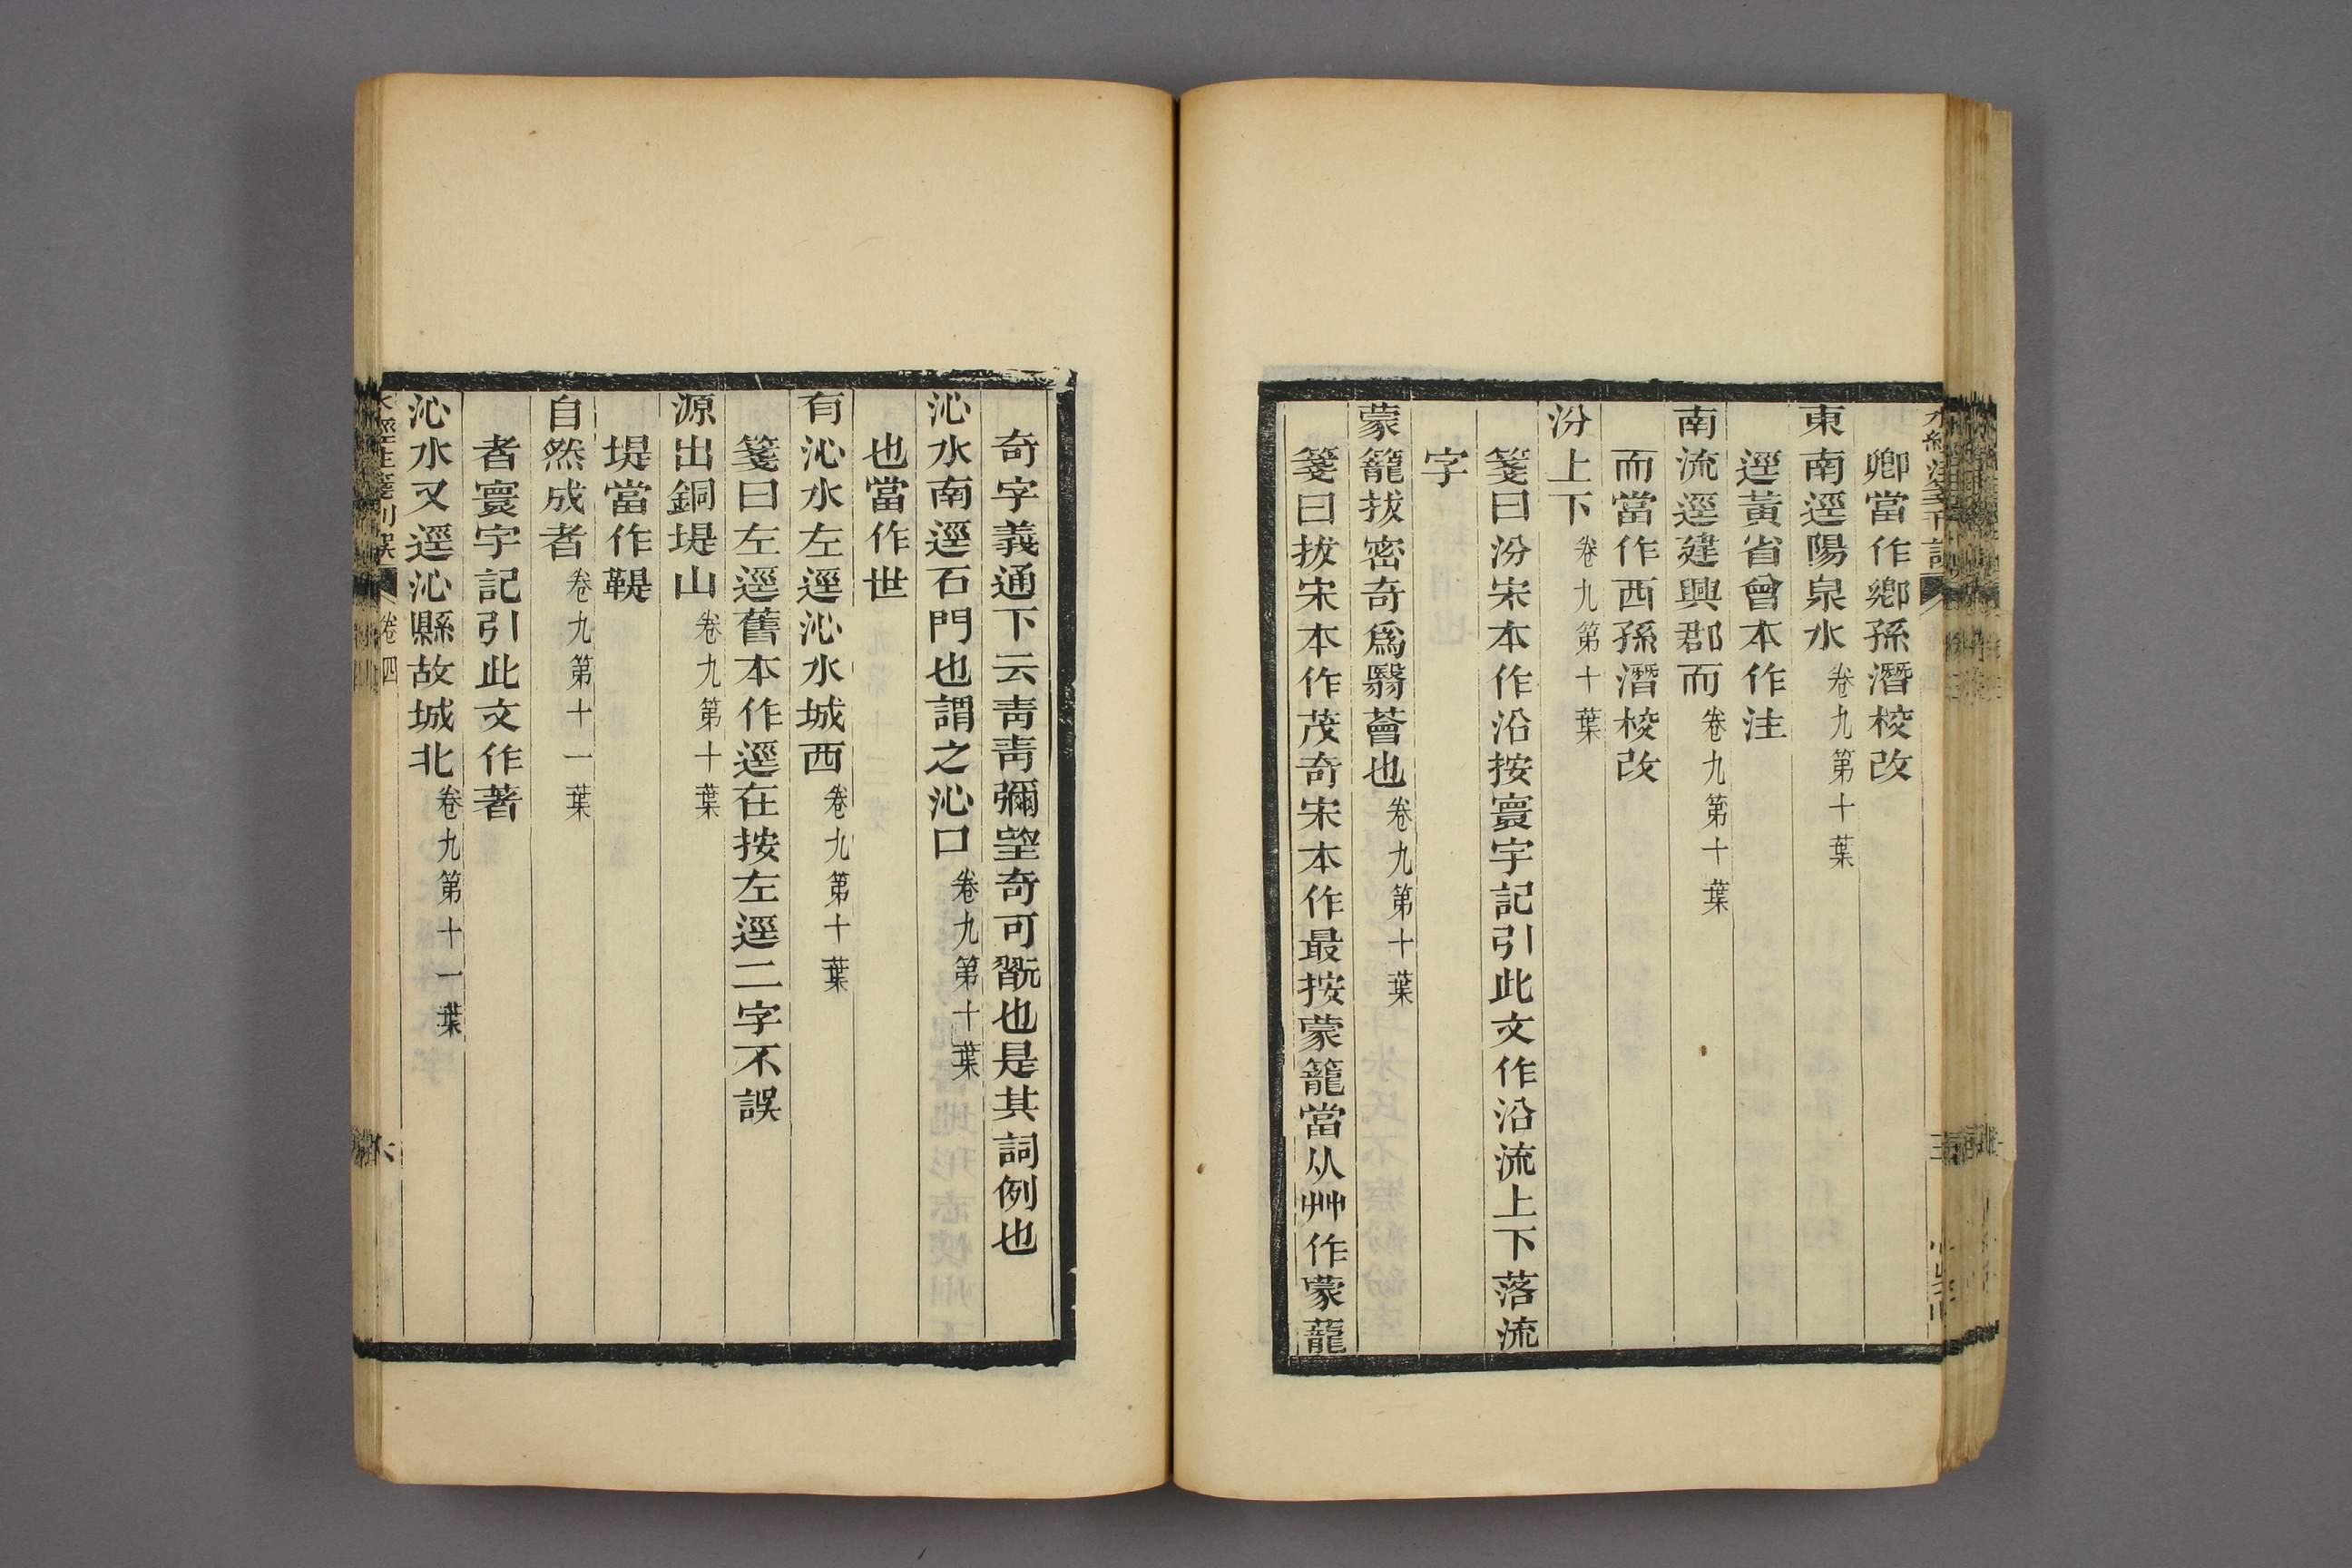 卿當作鄉孫潛校改
東南逕陽泉水卷九第十葉
逕黃省曾本作注
南流逕建興郡而卷九第十葉
而當作西孫潛校改
汾上下卷九第十葉
箋曰汾宋本作沿按寰宇記引此文作沿流上下落流
字
蒙籠拔密奇爲翳薈也卷九第十葉
箋曰拔宋本作茂奇宋本作最按蒙籠當从艸作蒙蘢
奇字義通下云靑靑彌望奇可翫也是其詞例也
沁水南逕石門也謂之沁口卷九第十葉
也當作世
有沁水左逕沁水城西卷九第十葉
箋曰左逕舊本作逕在按左逕二字不誤
源出銅堤山卷九第十葉
堤當作鞮
自然成者卷九第十一葉
者寰宇記引此文作著
沁水又逕沁縣故城北卷九第十一葉
水經注箋刊誤 卷四